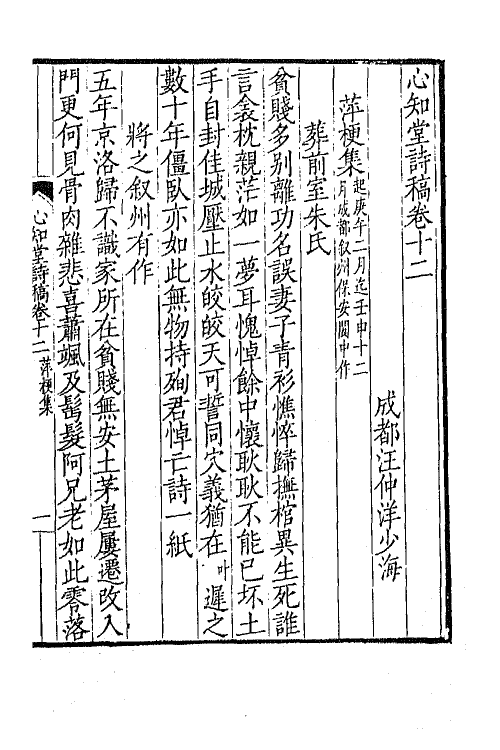 心知堂詩稿卷十二
成都汪仲洋少海
萍梗集起庚午二月迄壬申十二
月成都叙州保安閬中作
葬前室朱氏
貧賤多别離功名誤妻子青衫憔悴歸撫棺異生死誰
言衾枕親茫如一夢耳愧悼餘中懷耿耿不能已坏土
手自封佳城壓止水皎皎天可誓同穴義猶在叶遲之
數十年僵臥亦如此無物持殉君悼亡詩一紙
將之叙州有作
五年京洛歸不識家所在貧賤無安土茅屋屢遷改入
門更何見骨肉雜悲喜蕭颯及髩髮阿兄老如此零落
心知堂詩稿卷十二 萍梗集 一